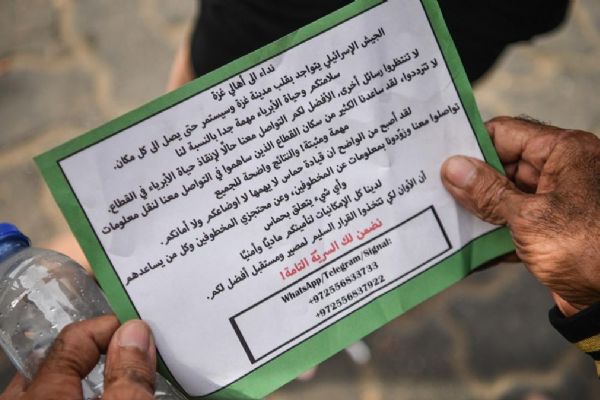 نداء الى أهالي غزة
الجيش الإسرائيلي يتواجد بقلب مدينة غزة وسيستمر حتى يصل الى كل مكان.
سلامتكم وحياة الأبرياء مهمة جدا بالنسبة لنا
لا تنتظروا رسائل أخرى، الأفضل لكم التواصل معنا حالاً لإنقاذ حياة الأبرياء في القطاع.
لا تترددوا، لقد ساعدنا الكثير من سكان القطاع الذين ساهموا في التواصل معنا لنقل معلومات
مهمة ومثبتة! والنتائج واضحة للجميع
لقد أصبح من الواضح ان قيادة حماس لا يهمها لا اوضاعكم ولا أمانكم.
تواصلوا معنا وزودونا بمعلومات عن المخطوفين، وعن محتجزي المخطوفين وكل من يساعدهم
وأي شيء يتعلق بحماس
لدينا كل الإمكانيات لتأمينكم ماديًا وأمنيًا
آن الأوان لكي تتخذوا القرار السليم لمصير ومستقبل أفضل لكم.
نضمن لك السرية التامة!
WhatsApp/Telegram/Signal:
+972556833733
+972556837922